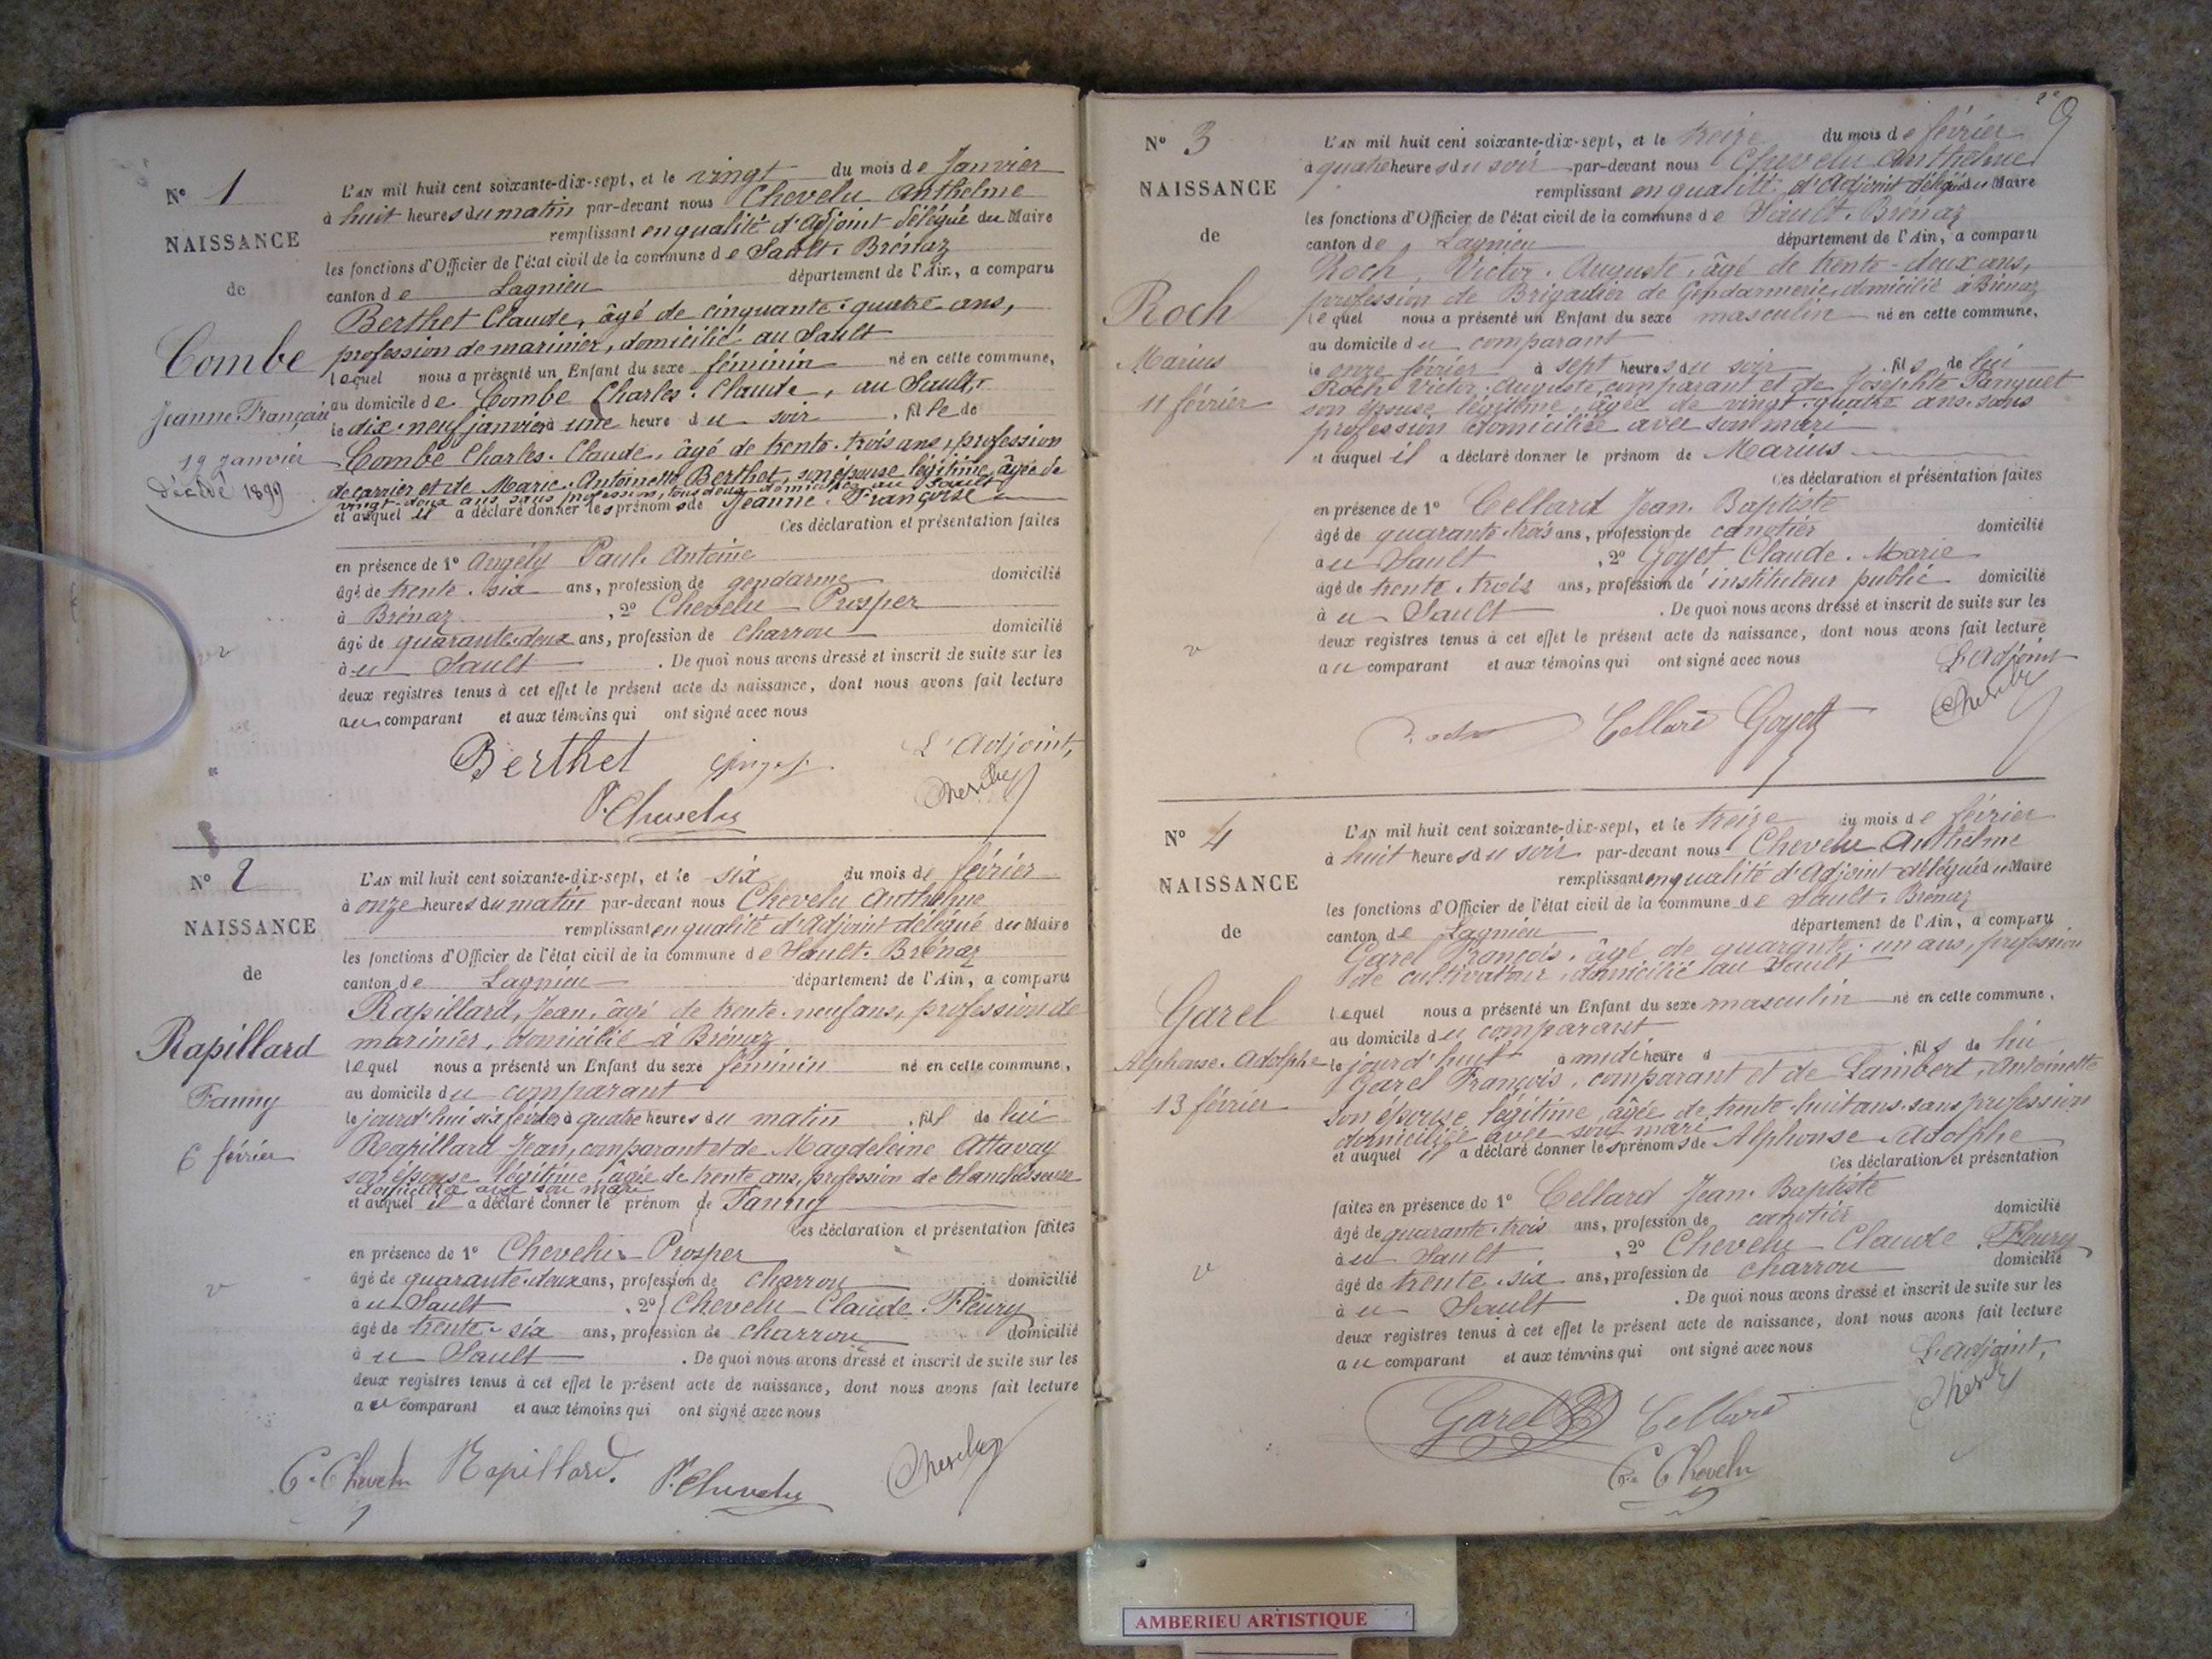 N° 1
NAISSANCE
de
Combe
Jeanne Françoise
19 Janvier
Décédé 1899
L'AN mil huit cent soixante-dix-sept, et le vingt du mois de Janvier
à huit heures du matin par-devant nous Chevelu Anthelme
remplissant en qualité d'Adjoint délégué du Maire
les fonctions d'Officier de l'état civil de la commune de Sault-Brénaz
canton de Lagnieu département de l'Ain, a comparu
Berthet Claude, âgé de cinquante-quatre ans,
profession de marinier, domicilié au Sault
lequel nous a présenté un Enfant du sexe féminin né en cette commune,
au domicile de Combe Charles-Claude, au Sault,
le dix-neuf janvier à une heure du soir, fille de
Combe Charles-Claude, âgé de trente-trois ans, profession
de carrier et de Marie-Antoinette Berthet, son épouse légitime, âgée de
vingt-deux ans, sans profession, tous deux domiciliés au Sault
et auquel il a déclaré donner les prénoms de Jeanne-Françoise
Ces déclaration et présentation faites
en présence de 1° Angély Paul-Antoine
âgé de trente-six ans, profession de gendarme domicilié
à Brénaz, 2° Chevelu Prosper
âgé de quarante-deux ans, profession de charron domicilié
à u Sault. De quoi nous avons dressé et inscrit de suite sur les
deux registres tenus à cet effet le présent acte de naissance, dont nous avons fait lecture
au comparant et aux témoins qui ont signé avec nous
Berthet L'Adjoint,
P. Chevelu Chevelu
N° 2
NAISSANCE
de
Rapillard
Fanny
6 février
L'AN mil huit cent soixante-dix-sept, et le six du mois de février
à onze heures du matin par-devant nous Chevelu Anthelme
remplissant en qualité d'Adjoint délégué du Maire
les fonctions d'Officier de l'état civil de la commune de Sault-Brénaz
canton de Lagnieu département de l'Ain, a comparu
Rapillard, Jean, âgé de trente-neuf ans, profession de
marinier, domicilié à Brénaz
lequel nous a présenté un Enfant du sexe féminin né en cette commune,
au domicile du comparant
le jourd'hui six février à quatre heures du matin, fils de lui
Rapillard Jean, comparant et de Magdeleine Attavay
son épouse légitime, âgée de trente ans, profession de blanchisseuse
domiciliée avec son mari
et auquel il a déclaré donner le prénom de Fanny
Ces déclaration et présentation faites
en présence de 1° Chevelu Prosper
âgé de quarante-deux ans, profession de charron domicilié
à u Sault, 2° Chevelu Claude-Fleury
âgé de trente-six ans, profession de charron domicilié
à u Sault. De quoi nous avons dressé et inscrit de suite sur les
deux registres tenus à cet effet le présent acte de naissance, dont nous avons fait lecture
au comparant et aux témoins qui ont signé avec nous
C. Chevelu Rapillard. P. Chevelu Chevelu
N° 3
NAISSANCE
de
Roch
Marius
11 février
L'AN mil huit cent soixante-dix-sept, et le treize du mois de février
à quatre heures du soir par-devant nous Chevelu Anthelme
remplissant en qualité d'Adjoint délégué du Maire
les fonctions d'Officier de l'état civil de la commune de Sault-Brénaz
canton de Lagnieu département de l'Ain, a comparu
Roch, Victor-Auguste, âgé de trente-deux ans,
profession de Brigadier de Gendarmerie, domicilié à Brénaz
lequel nous a présenté un Enfant du sexe masculin né en cette commune,
au domicile du comparant
le onze février à sept heures du soir, fils de lui
Roch Victor-Auguste, comparant et de Josephte Panquet
son épouse légitime, âgée de vingt-quatre ans, sans
profession domiciliée avec son mari
et auquel il a déclaré donner le prénom de Marius
Ces déclaration et présentation faites
en présence de 1° Cellard Jean-Baptiste
âgé de quarante-trois ans, profession de canotier domicilié
à u Sault, 2° Goyet Claude-Marie
âgé de trente-trois ans, profession de instituteur public domicilié
à u Sault. De quoi nous avons dressé et inscrit de suite sur les
deux registres tenus à cet effet le présent acte de naissance, dont nous avons fait lecture
au comparant et aux témoins qui ont signé avec nous L'Adjoint
Cellard Goyet Chevelu
N° 4
NAISSANCE
de
Garel
Alphonse-Adolphe
13 février
L'AN mil huit cent soixante-dix-sept, et le treize du mois de février
à huit heures du soir par-devant nous Chevelu Anthelme
remplissant en qualité d'Adjoint délégué du Maire
les fonctions d'Officier de l'état civil de la commune de Sault-Brénaz
canton de Lagnieu département de l'Ain, a comparu
Garel François, âgé de quarante-un ans, profession
de cultivateur, domicilié au Sault
lequel nous a présenté un Enfant du sexe masculin né en cette commune,
au domicile du comparant
le jourd'hui à midi heure d, fils de lui
Garel François, comparant et de Lambert, Antoinette
son épouse légitime, âgée de trente-huit ans, sans profession
domiciliée avec son mari
et auquel il a déclaré donner les prénoms de Alphonse-Adolphe
Ces déclaration et présentation
faites en présence de 1° Cellard Jean-Baptiste
âgé de quarante-trois ans, profession de canotier domicilié
à u Sault, 2° Chevelu Claude-Fleury
âgé de trente-six ans, profession de charron domicilié
à u Sault. De quoi nous avons dressé et inscrit de suite sur les
deux registres tenus à cet effet le présent acte de naissance, dont nous avons fait lecture
au comparant et aux témoins qui ont signé avec nous L'Adjoint,
Garel Cellard Chevelu
C. Chevelu
AMBERIEU ARTISTIQUE